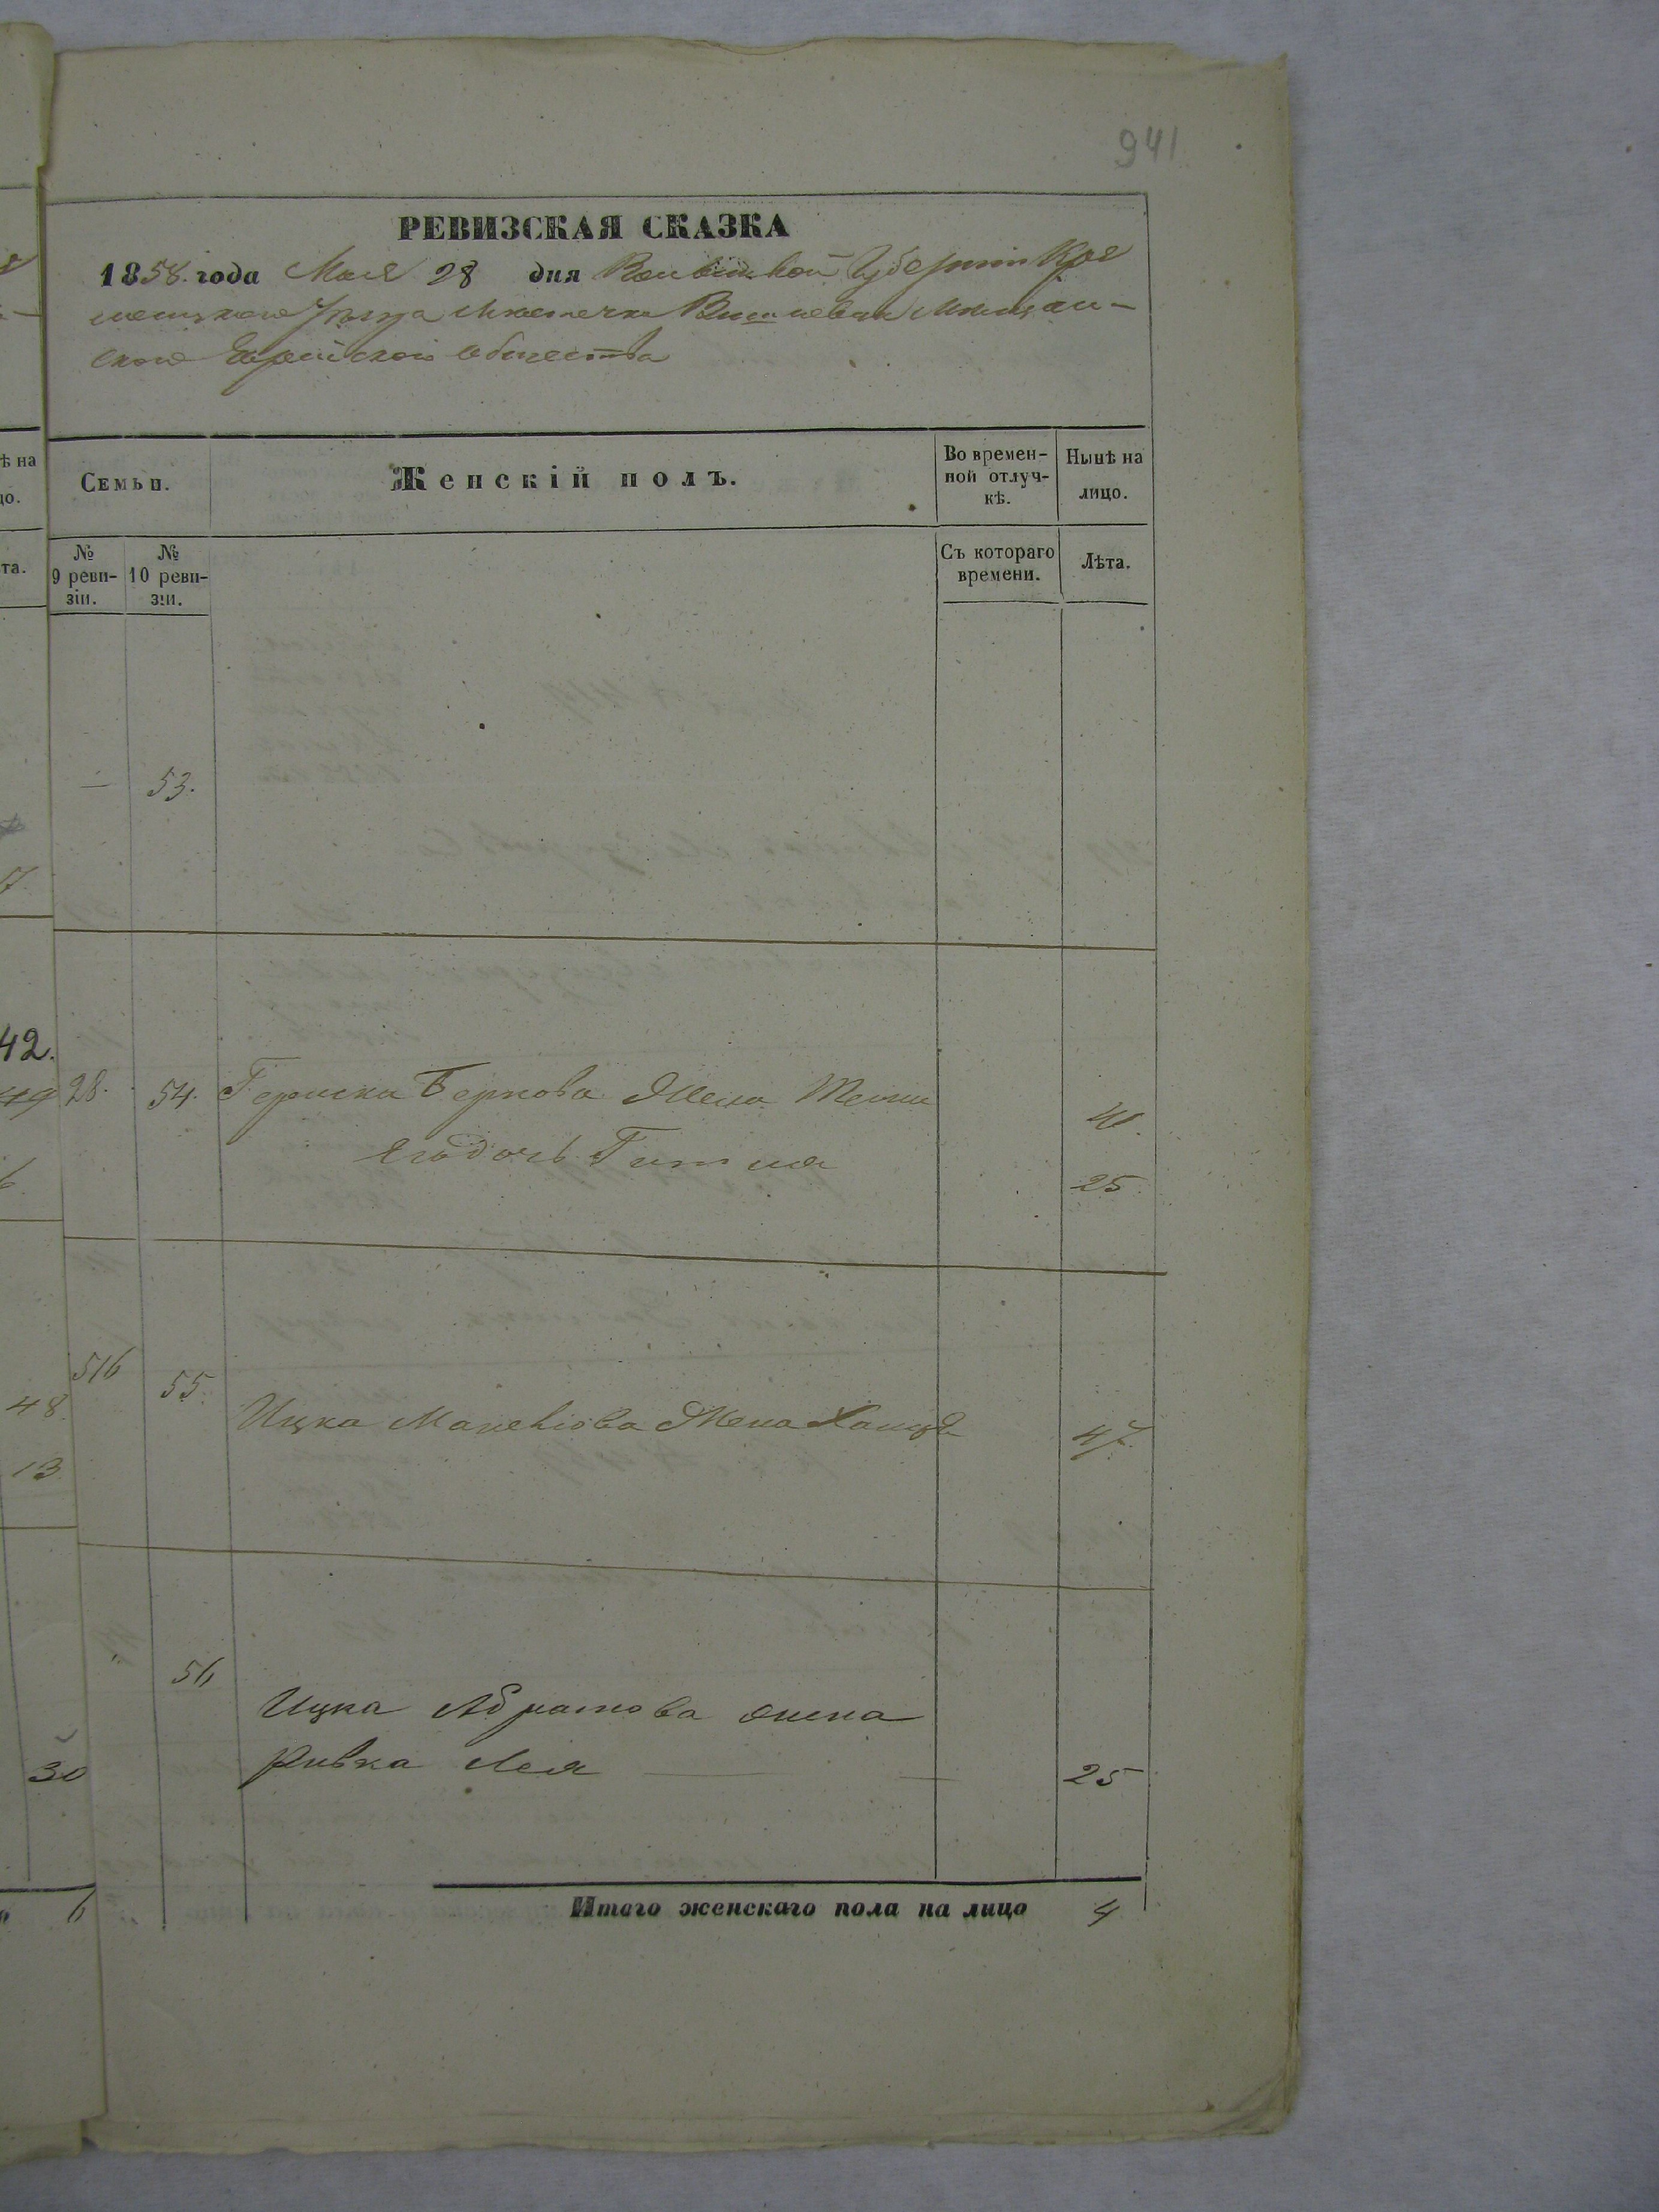 941
РЕВИЗСКАЯ СКАЗКА
1858. года Мая 28 дня Волынской Губерніи Кре
менецкаго Уѣзда Мѣстечка Вишневца Мѣщан-
скаго Еврейскаго Общества
ѣ на
Семьи.
Женскій полъ.
Во времен-
ной отлуч-
кѣ.
Нынѣ на
лицо.
№
9 реви-
зіи.
№
10 реви-
зіи.
Съ котораго
времени.
Лѣта.
та.
— 53.
7
42.
49 28. 54. Гершка Беркова Жена
41.
6 его дочь Гитля 25.
516 55.
48. Ицка Жена 47.
13.
56
Ицка Абрамова жена
30 Ривка Лея 25
6 Итого женскаго пола на лицо 4